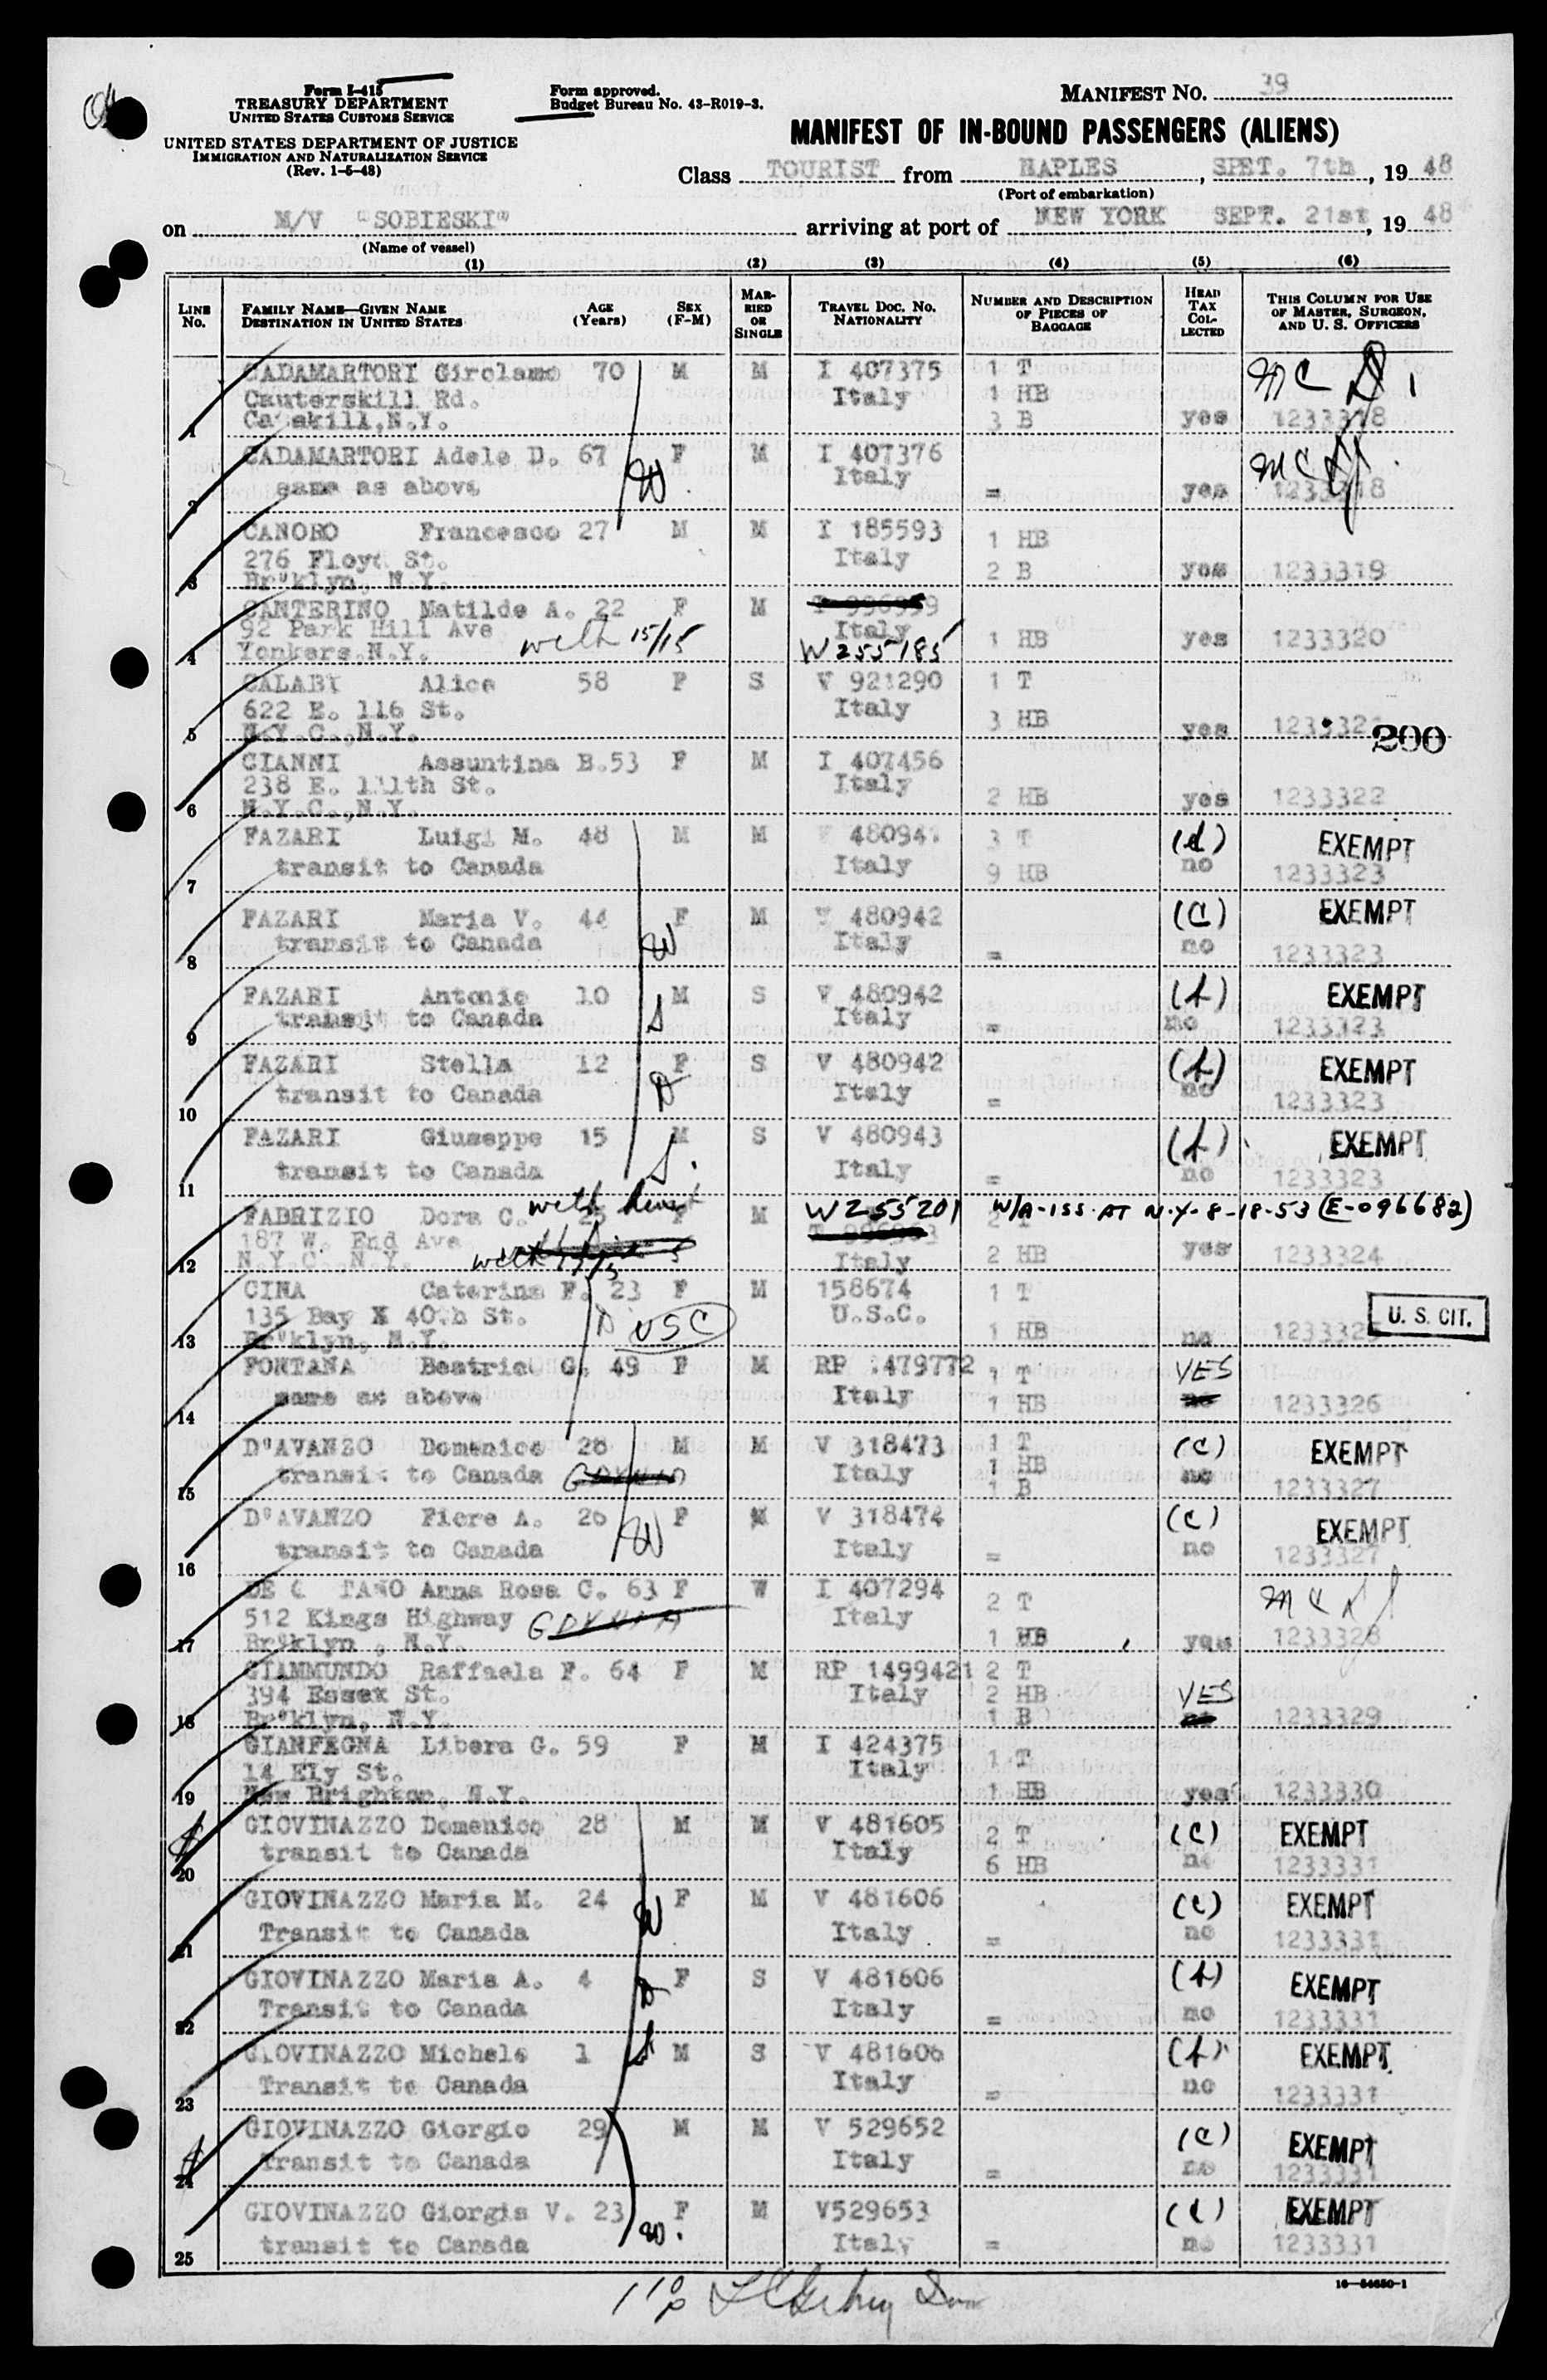 Form I-415
TREASURY DEPARTMENT
UNITED STATES CUSTOMS SERVICE
UNITED STATES DEPARTMENT OF JUSTICE
IMMIGRATION AND NATURALIZATION SERVICE
(Rev. 1-5-48)
Form approved.
Budget Bureau No. 43-R019-3.
MANIFEST NO. 39
MANIFEST OF IN-BOUND PASSENGERS (ALIENS)
Class TOURIST from NAPLES, SPET. 7th, 19 48
(Port of embarkation)
on M/V "SOBIESKI" arriving at port of NEW YORK SEPT. 21st, 19 48
(Name of vessel)
(1) (2) (3) (4) (5) (6)
LINE No. FAMILY NAME—GIVEN NAME DESTINATION IN UNITED STATES AGE (Years) SEX (F-M) MARRIED OR SINGLE TRAVEL DOC. NO. NATIONALITY NUMBER AND DESCRIPTION OF PIECES OF BAGGAGE HEAD TAX COLLECTED THIS COLUMN FOR USE OF MASTER, SURGEON, AND U. S. OFFICERS
CADAMARTORI Girolamo 70 M M I 407375 1 T
Cauterskill Rd. Italy 1 HB
1 Catskill, N.Y. 3 B yes 1233318
CADAMARTORI Adele D. 67 F M I 407376
2 same as above W. Italy = yes 1233318
CANORO Francesco 27 M M I 185593 1 HB
276 Floyd St. Italy
3 Br'klyn, N.Y. 2 B yes 1233319
CANTERINO Matilde A. 22 F M
92 Park Hill Ave Italy
4 Yonkers.N.Y. 15/15 W255185 1 HB yes 1233320
CALABI Alice 58 F S V 921290 1 T
622 E. 116 St. Italy 3 HB
5 N.Y.C.,N.Y. yes 200
CIANNI Assuntina B. 53 F M I 407456
238 E. 111th St. Italy
6 N.Y.C.,N.Y. 2 HB yes 1233322
FAZARI Luigi M. 48 M M 480941 3 T EXEMPT
7 transit to Canada Italy 9 HB no 1233323
FAZARI Maria V. 44 F M V 480942 (C) EXEMPT
8 transit to Canada W Italy = no 1233323
FAZARI Antonio 10 M S V 480942 EXEMPT
9 transit to Canada Italy = no 1233323
FAZARI Stella 12 F S V 480942 EXEMPT
10 transit to Canada D Italy = no 1233323
FAZARI Giuseppe 15 M S V 480943 EXEMPT
11 transit to Canada Italy = no 1233323
FABRIZIO Dora C. F M W255201 W/A-ISS. AT N.Y-8-18-53 (E-096682)
187 W. End Ave
12 N.Y.C. N.Y. Italy 2 HB yes 1233324
CINA Caterina F. 23 F M 158674 1 T
135 Bay X 40th St. D USC U.S.C.
13 Br'klyn, N.Y. 1 HB no U. S. CIT.
FONTANA Beatrice G. 49 F M RP 1479772 1 T YES
14 same as above Italy 1 HB 1233326
D'AVANZO Domenico 28 M M V 318473 1 T (C) EXEMPT
15 transit to Canada Italy 1 HB no 1233327
1 B
D'AVANZO Fiore A. 26 F M V 318474 (C) EXEMPT
16 transit to Canada W Italy = no 1233327
Anna Rosa C. 63 F W I 407294 2 T
512 Kings Highway Italy
17 Br'klyn, N.Y. 1 HB yes 1233328
GIAMMUNDO Raffaela F. 64 F M RP 1499421 2 T
394 Essex St. Italy 2 HB YES
18 Br'klyn, N.Y. 1 B 1233329
GIANFEGNA Libera G. 59 F M I 424375 1 T
14 Ely St. Italy
19 New Brighton, N.Y. 1 HB yes 1233330
GIOVINAZZO Domenico 28 M M V 481605 2 T (C) EXEMPT
20 transit to Canada Italy 6 HB no 1233331
GIOVINAZZO Maria M. 24 F M V 481606 (C) EXEMPT
21 Transit to Canada W Italy = no 1233331
GIOVINAZZO Maria A. 4 F S V 481606 EXEMPT
22 Transit to Canada D Italy = no 1233331
GIOVINAZZO Michele 1 M S V 481606 EXEMPT
23 Transit to Canada Italy = no 1233331
GIOVINAZZO Giorgio 29 M M V 529652 (C) EXEMPT
24 Transit to Canada Italy = no 1233331
GIOVINAZZO Giorgia V. 23 F M V529653 EXEMPT
25 transit to Canada W. Italy = no 1233331
16—54650-1